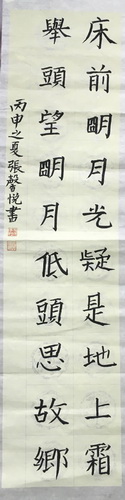 床前朙月光疑是地上霜
舉頭望朙月低頭思故鄉
丙申之夏張馨悦書